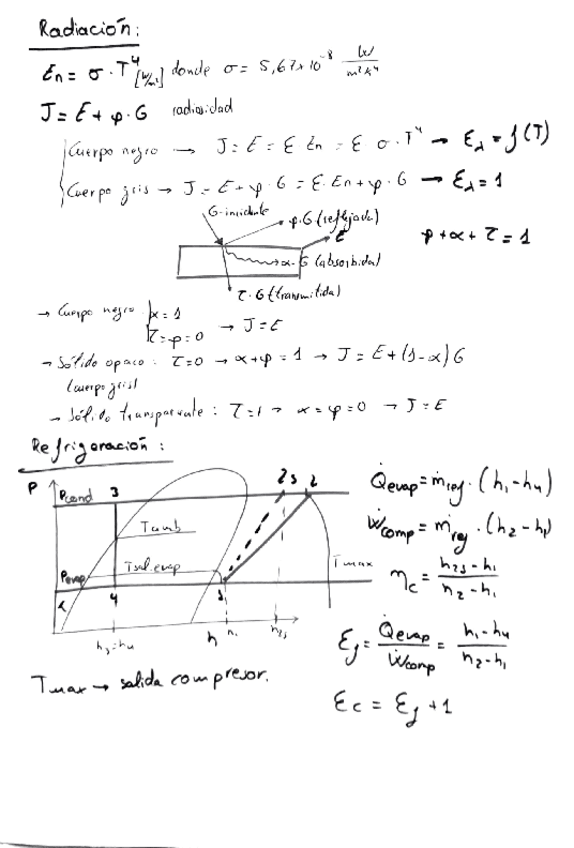 Radiación:
En = σ · T⁴ [W/m²] donde σ = 5,67x10⁻⁸ W/m²k⁴
J = E + φ · G radiosidad
Cuerpo negro → J = E = ε · En = ε · σ · T⁴ → ελ = f(T)
Cuerpo gris → J = E + φ · G = ε · En + φ · G → ελ = 1
G · incidente
φ · G (reflejada)
E
α · G (absorbida)
φ + α + τ = 1
τ · G (transmitida)
→ Cuerpo negro α = 1
τ = φ = 0 → J = E
→ Sólido opaco : τ = 0 → α + φ = 1 → J = E + (1 - α) G
(cuerpo gris)
→ Sólido transparente : τ = 1 → α = φ = 0 → J = E
Refrigeración :
P
Pcond 3 2s 2
Tamb
Pevap Tsal.evap Tmax
4 1
h₃ = h₄ h h₁ h₂s
Q̇evap = ṁref · (h₁ - h₄)
Ẇcomp = ṁref · (h₂ - h₁)
ηc = h₂s - h₁ / h₂ - h₁
εf = Q̇evap / Ẇcomp = h₁ - h₄ / h₂ - h₁
Tmax → salida compresor.
εc = εf + 1